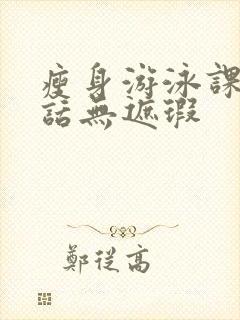 瘦身游泳課
話無遮瑕
鄭從高